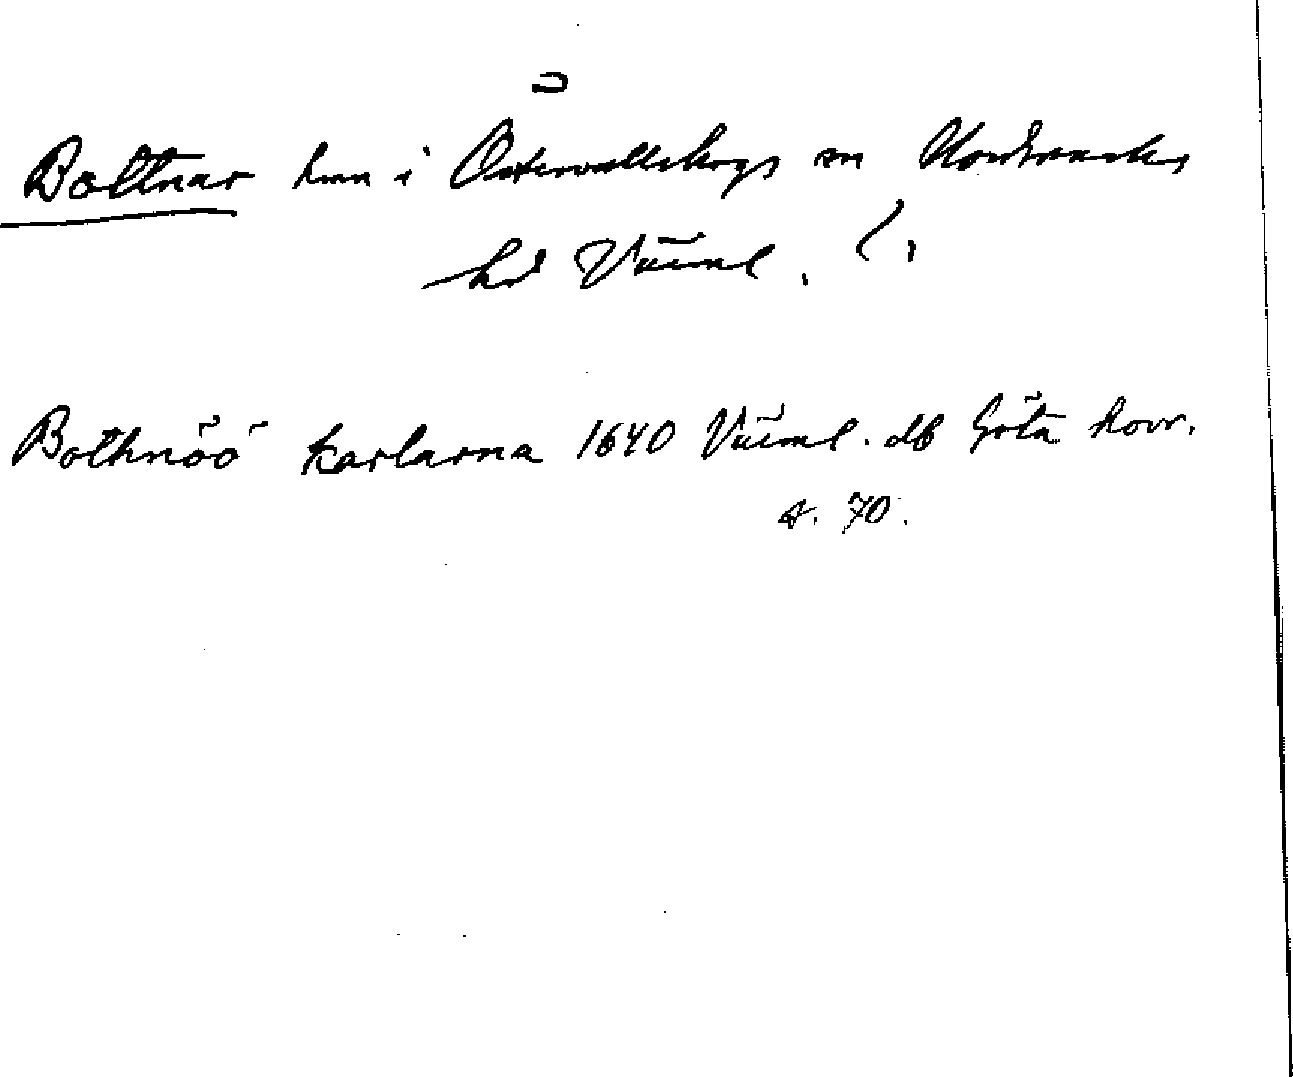 Bottnar hmn i Östervallskogs sn Nordmarks
hd Värml.
Bothnöö karlarna 1640 Värml. db Göta hovr.
s. 70.